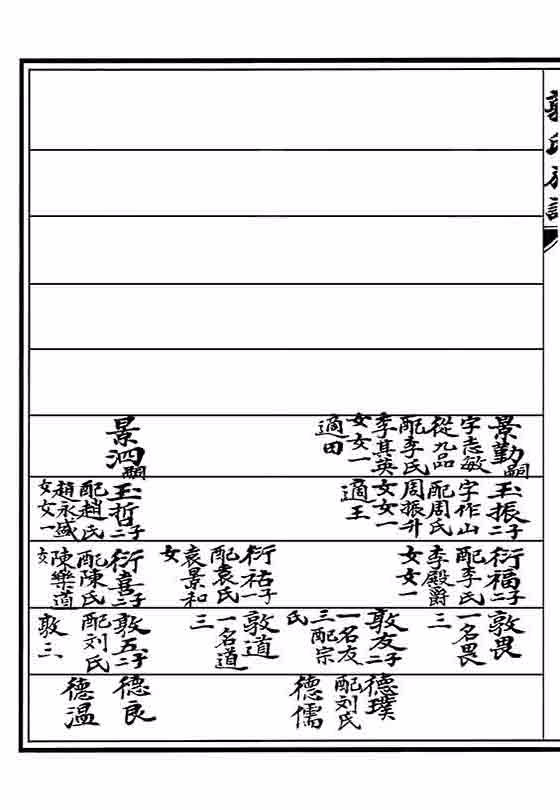 景勤嗣
字志敏
從九品
配李氏
李其英
女女一
適田
景泗嗣
玉振二子
字作山
配周氏
周振升
女女一
適王
玉哲二子
配趙氏
趙永盛
女女一
衍福二子
配李氏
李殿爵
女女一
衍祐一子
配袁氏
袁景和
女
衍喜二子
配陳氏
陳樂道
女
敦畏
一名畏
三
敦友二子
一名友
三配宗
氏
敦道
一名道
三
敦五二子
配刘氏
敦三
德璞
配刘氏
德儒
德良
德温